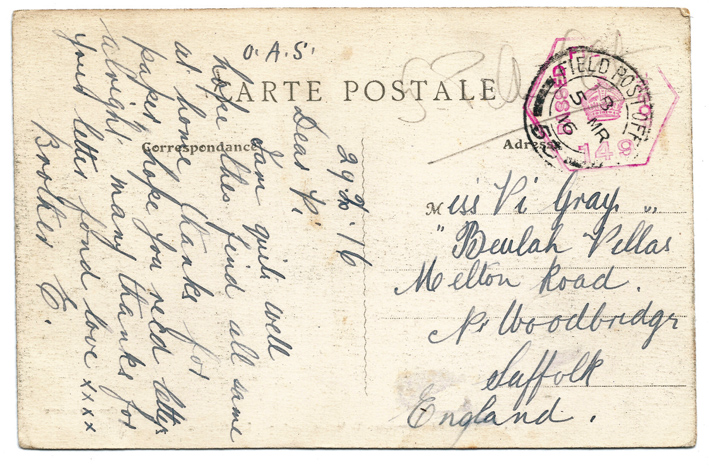 O. A. S.
CARTE POSTALE
Correspondance
Adresse
FIELD POST OFF
3 MR
16
149
29.2.16
Dear Vi
I am quite well
hope this find all same
at home thanks for
paper, hope you recd letter
alright, many thanks for
your letter fond love xxxx
Brother E.
Miss Vi Gray "
"Beulah Villas
Melton Road.
Nr Woodbridge
Suffolk
England.